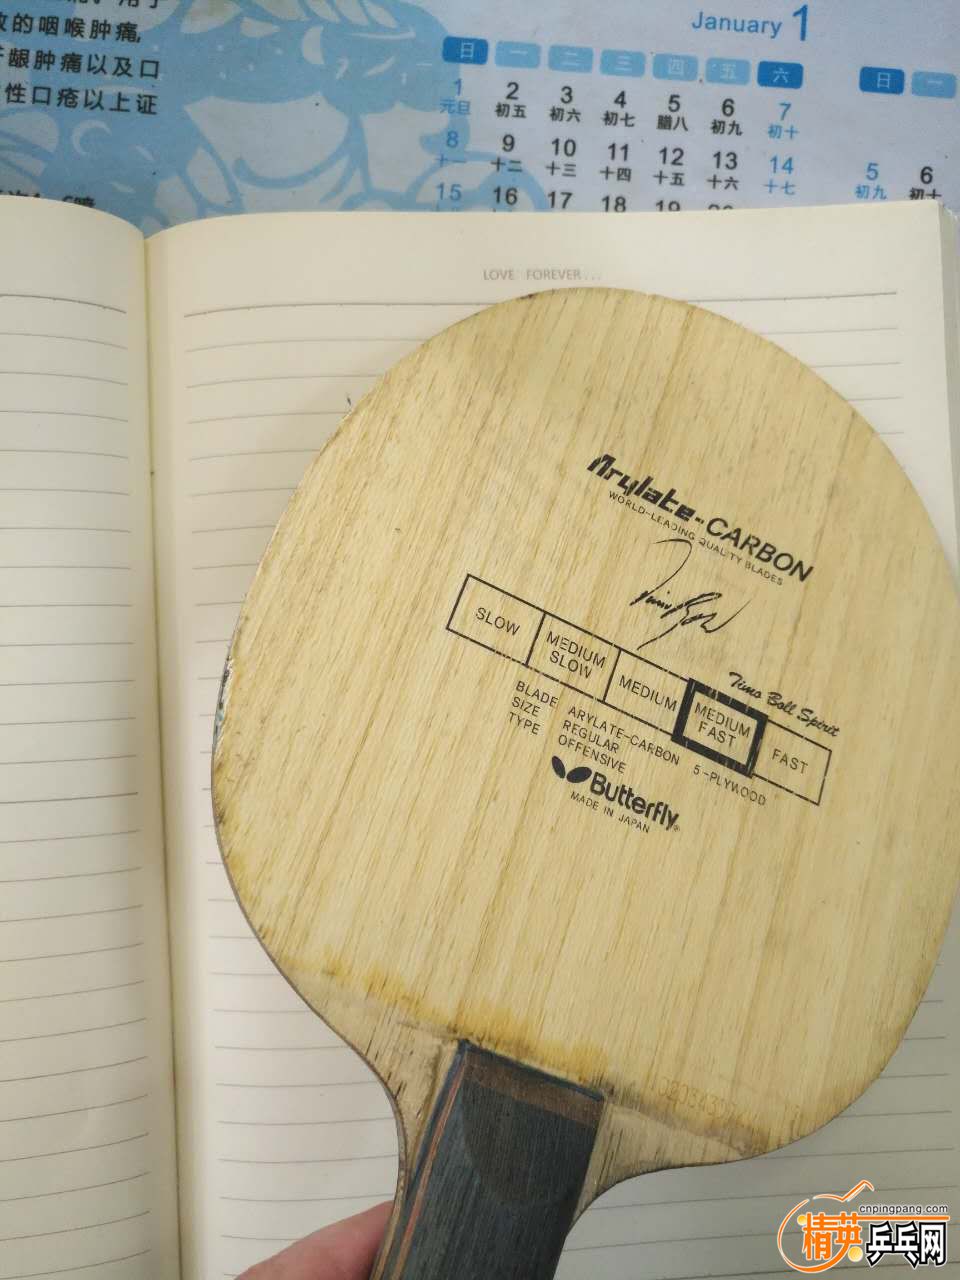 的咽喉肿痛,
龈肿痛以及口
性口疮以上证
January 1
日 一 二 三 四 五 六
1 2 3 4 5 6 7
元旦 初五 初六 初七 腊八 初九 初十
8 9 10 11 12 13 14
十一 十二 十三 十四 十五 十六 十七
15 16 17 18 19
日 一
5 6
初九 初十
LOVE FOREVER...
Arylate-CARBON
WORLD-LEADING QUALITY BLADES
Timo Boll Spirit
SLOW MEDIUM SLOW MEDIUM MEDIUM FAST FAST
BLADE ARYLATE-CARBON 5-PLYWOOD
SIZE REGULAR
TYPE OFFENSIVE
Butterfly®
MADE IN JAPAN
cnpingpang.com
精英乒乓网